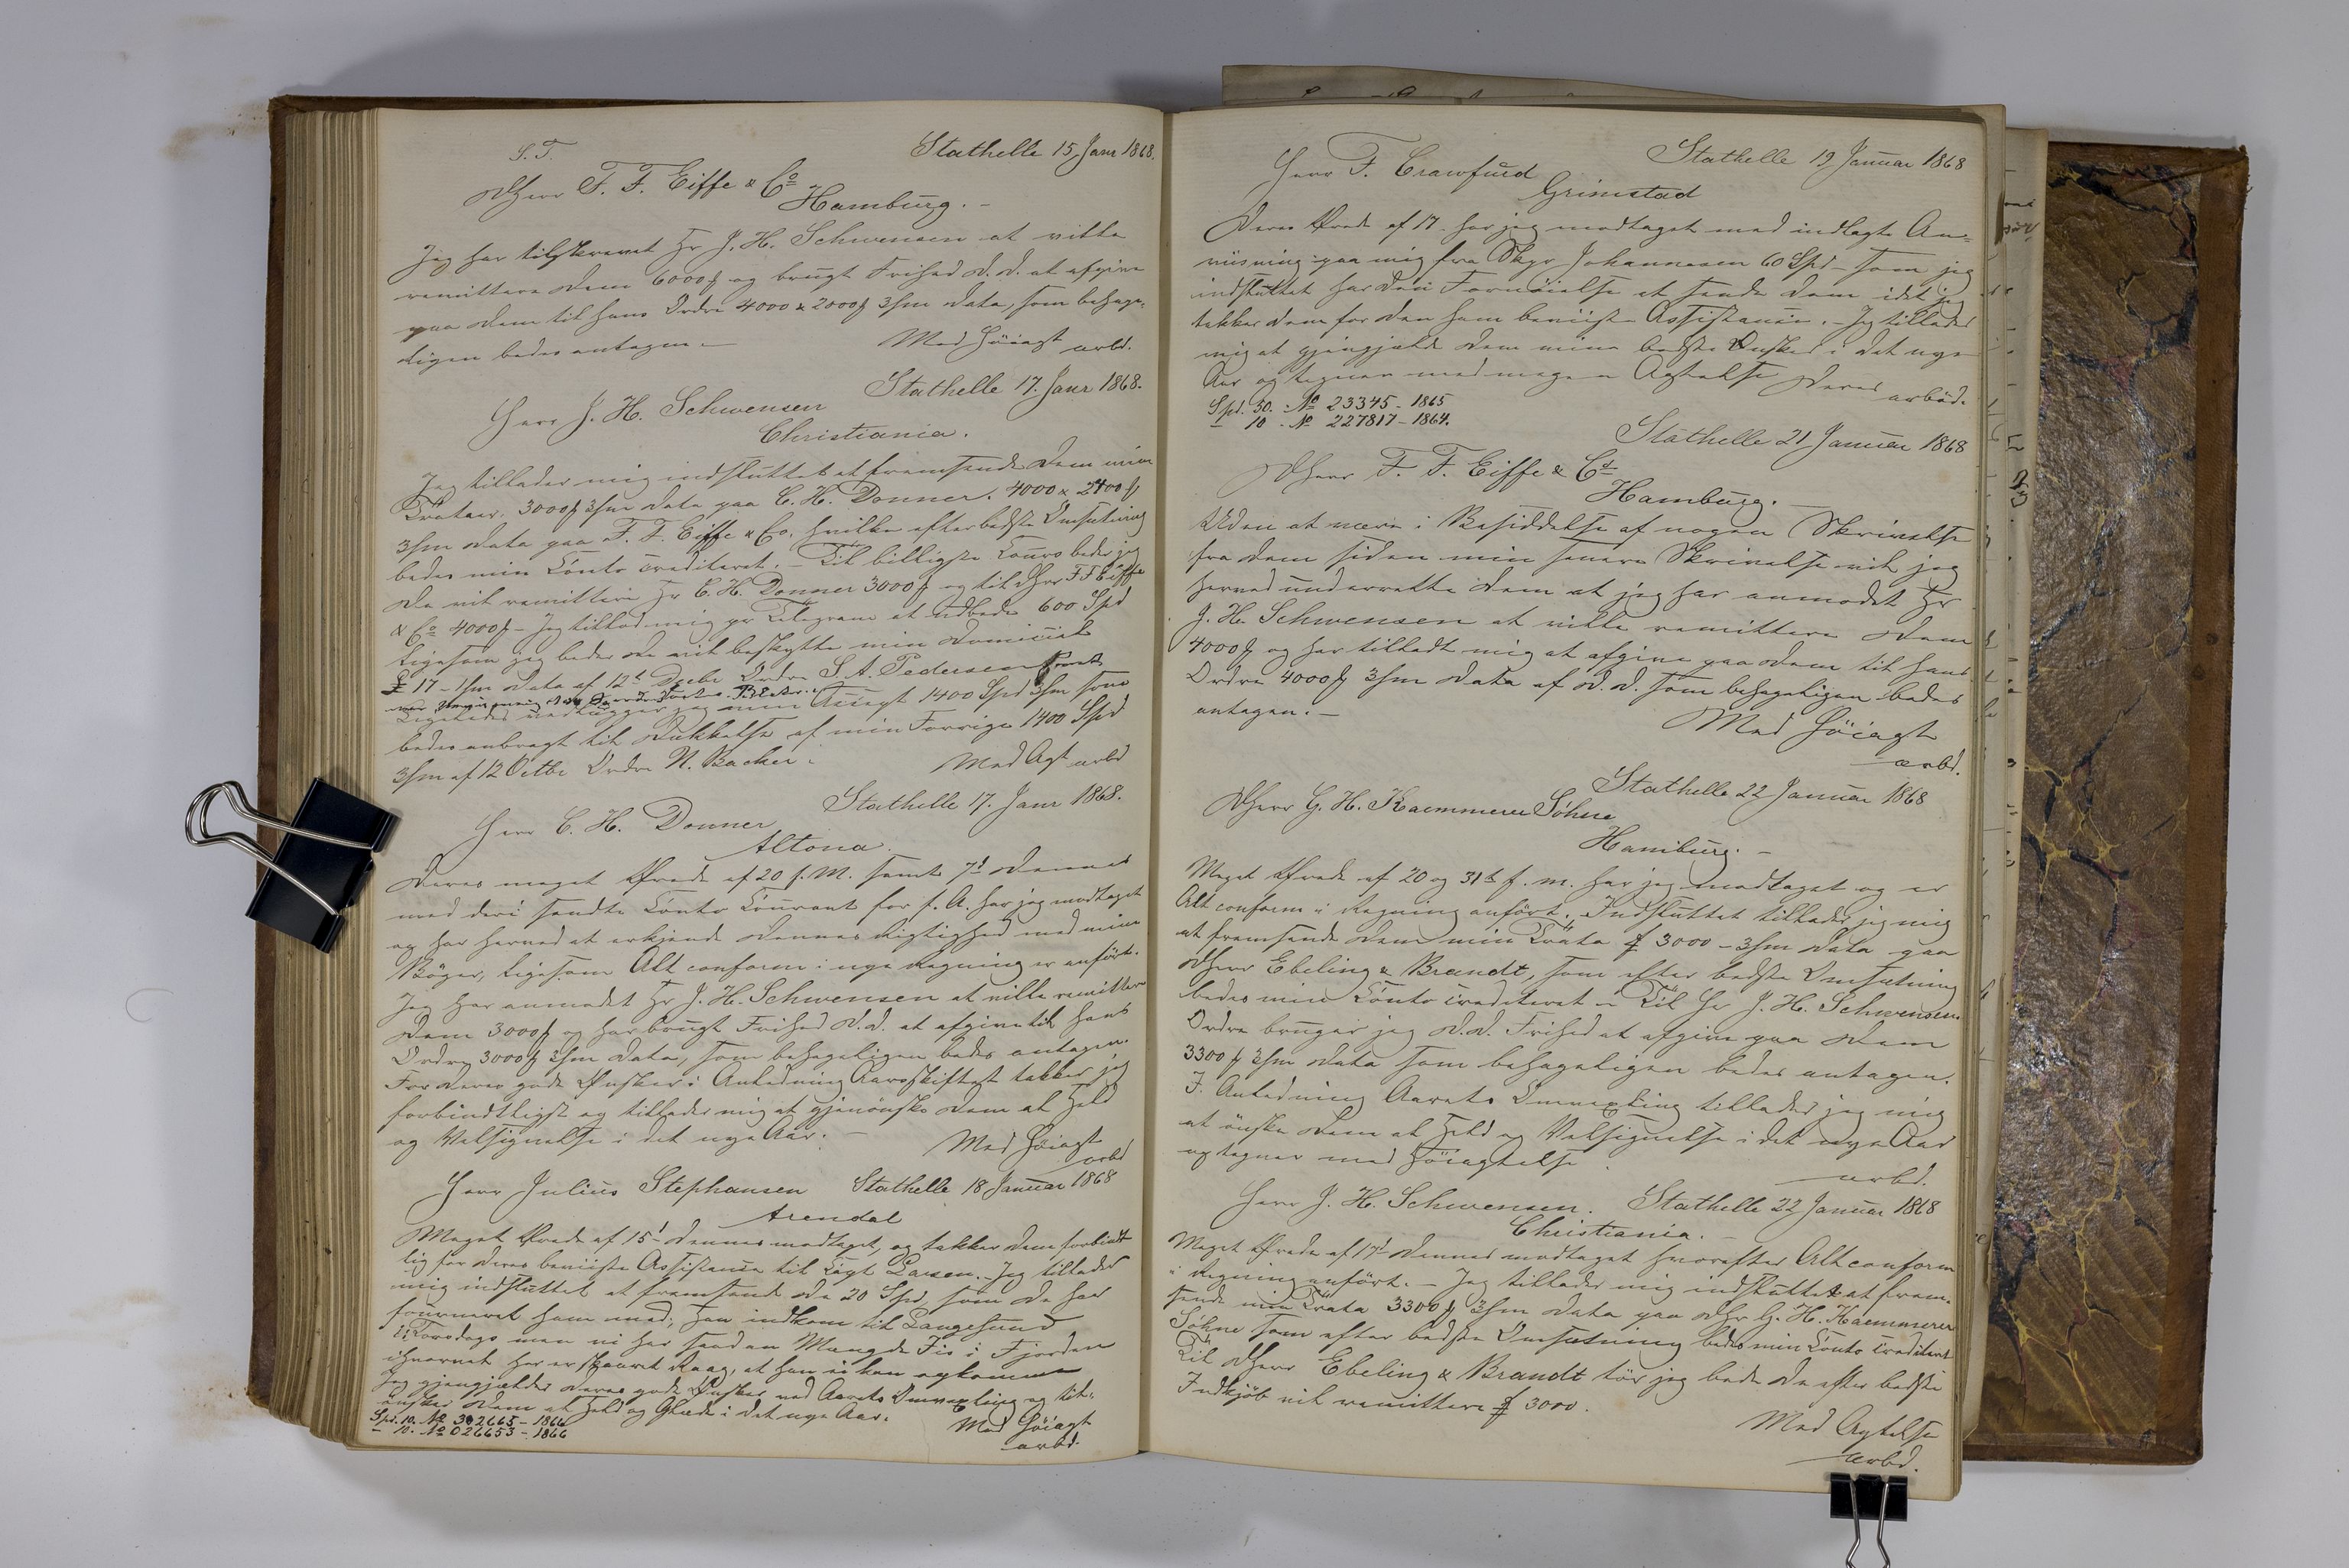 S. T.
Stathelle 15. Janr 1868.
DHerr F. F. Eiffe & Co
Hamburg. -
Jeg har tilskrevet Hr J. H. Schwensen at ville
remittere Dem 6000 og brugt Frihed d. d. at afgive
paa Dem til hans Ordre 4000 & 2000 3/m data, som behage-
ligen bedes antagen. -
Med Høiagt
arbd.
Stathelle 17. Janr 1868.
Herr J. H. Schwensen
Christiania.
Jeg tillader mig indsluttet at fremsende Dem min
Tratter. 3000 3/m data paa C. H. Donner. 4000 & 2400
3/m data paa F. F. Eiffe & Co. hvilke efter bedste Omsætning
bedes min Conto crediteret. - Til billigste Cours beder jeg
De vil remittere Hr C. H. Donner 3000 og til DHrr F F Eiffe
& Co 4000 - Jeg tillod mig pr Telegram at udbede 600 Spd
Ligesom jeg beder De vil beskytte min Domicial
£ 17 - 1/m data af 12t Ordre S. A. Pedersen
Ligeledes vedlægger jeg min Accept 1400 Spd 3/m som
bedes anbragt til Dækkelse af min Forrige 1400 Spd
3/m af 12 Octbr Ordre N. Backer.
Med Agt arbd
Stathelle 17. Janr 1868.
Herr C. H. Donner
Altona.
Deres meget Ærede af 20 f. M. samt 7d Dennes
med deri sendte Conto Courant for f. A. har jeg modtaget
og har herved at erkjende Dennes Rigtighed med mine
Bøger, ligesom Alt conform i nye Regning er anført.
Jeg har anmodet Hr J. H. Schwensen at ville remittere
Dem 3000 og har brugt Frihed d. d. at afgive til hans
Ordre 3000 3/m data, som behageligen bedes antagen.
For Deres gode Ønsker i Anledning Aarsskiftet takker jeg
forbindtligst og tillader mig at gjenønske Dem al Held
og Velsignelse i det nye Aar. -
Med Høiagt
arbd
Herr Julius Stephansen Stathelle 18 Januar 1868
Arendal
Meget Ærede af 15t Dennes modtaget, og takker Dem forbindt
lig for Deres beviiste Assistance til Capt Larsen. Jeg tillader
mig indsluttet at fremsende De 20 Spd, som De har
fourneret ham med; han indkom til Langesund
i Torsdags men vi har saadan Mængde Iis i Fjorden
Jeg gjengjælder Deres gode Ønsker ved Aarets Omvexling og til-
ønsker Dem al Held og Glæde i det nye Aar.
Spd. 10. No 302665 - 1866
" 10. No 026653 - 1866
Med Høiagt
arbd.
Stathelle 19 Januar 1868
Herr F. Crawfurd
Grimstad
Deres Ærede af 17. har jeg modtaget med indlagte An-
viisning paa mig fra Skpr Johannesen 60 Spd - som jeg
indsluttet har den Fornøielse at sende Dem idet jeg
takker Dem for den ham beviiste Assistance. - Jeg tillader
mig at gjengjælde Dem mine bedste Ønsker i det nye
Aar og tegner med megen Agtelse Deres
arbød.
Spd. 50. No 23345 - 1865
" 10. No 227817 - 1864.
Stathelle 21 Januar 1868
DHerr F. F. Eiffe & Co
Hamburg.
Uden at være i Besiddelse af nogen Skrivelse
fra Dem siden min senere Skrivelse vil jeg
herved underrette Dem at jeg har anmodet Hr
J. H. Schwensen at ville remittere Dem
4000 og har tilladt mig at afgive paa Dem til hans
Ordre 4000 3/m data af d. d. som behageligen bedes
antagen. -
Med Høiagt
arbd.
Stathelle 22 Januar 1868
DHerr G. H. Kaemmerer Söhne
Hamburg. -
Meget Ærede af 20 og 31te f. m. har jeg modtaget og er
Alt conform i Regning anført. Indsluttet tillader jeg mig
at fremsende Dem min Tratta £ 3000 - 3/m data paa
DHerr Ebeling & Brandt, som efter bedste Omsætning
bedes min Conto crediteret - Til Hr J. H. Schwensens
Ordre bruger jeg d. d. Frihed at afgive paa Dem
3300 3/m data som behageligen bedes antagen.
I Anledning Aarets Omvexling tillader jeg mig
at ønske Dem al Held og Velsignelse i det nye Aar
og tegner med Høiagtelse
arbd.
Herr J. H. Schwensen. Stathelle 22 Januar 1868
Christiania. -
Meget Ærede af 17d Dennes modtaget hvorefter Alt conform
i Regning anført. - Jeg tillader mig indsluttet at frem-
sende min Tratta 3300 3/m data paa DHr G. H. Kaemmerer
Söhne som efter bedste Omsætning bedes min Conto crediteret
Til DHerr Ebeling & Brandt tør jeg bede De efter bedste
Indkjøb vil remittere £ 3000.
Med Agtelse
arbd.